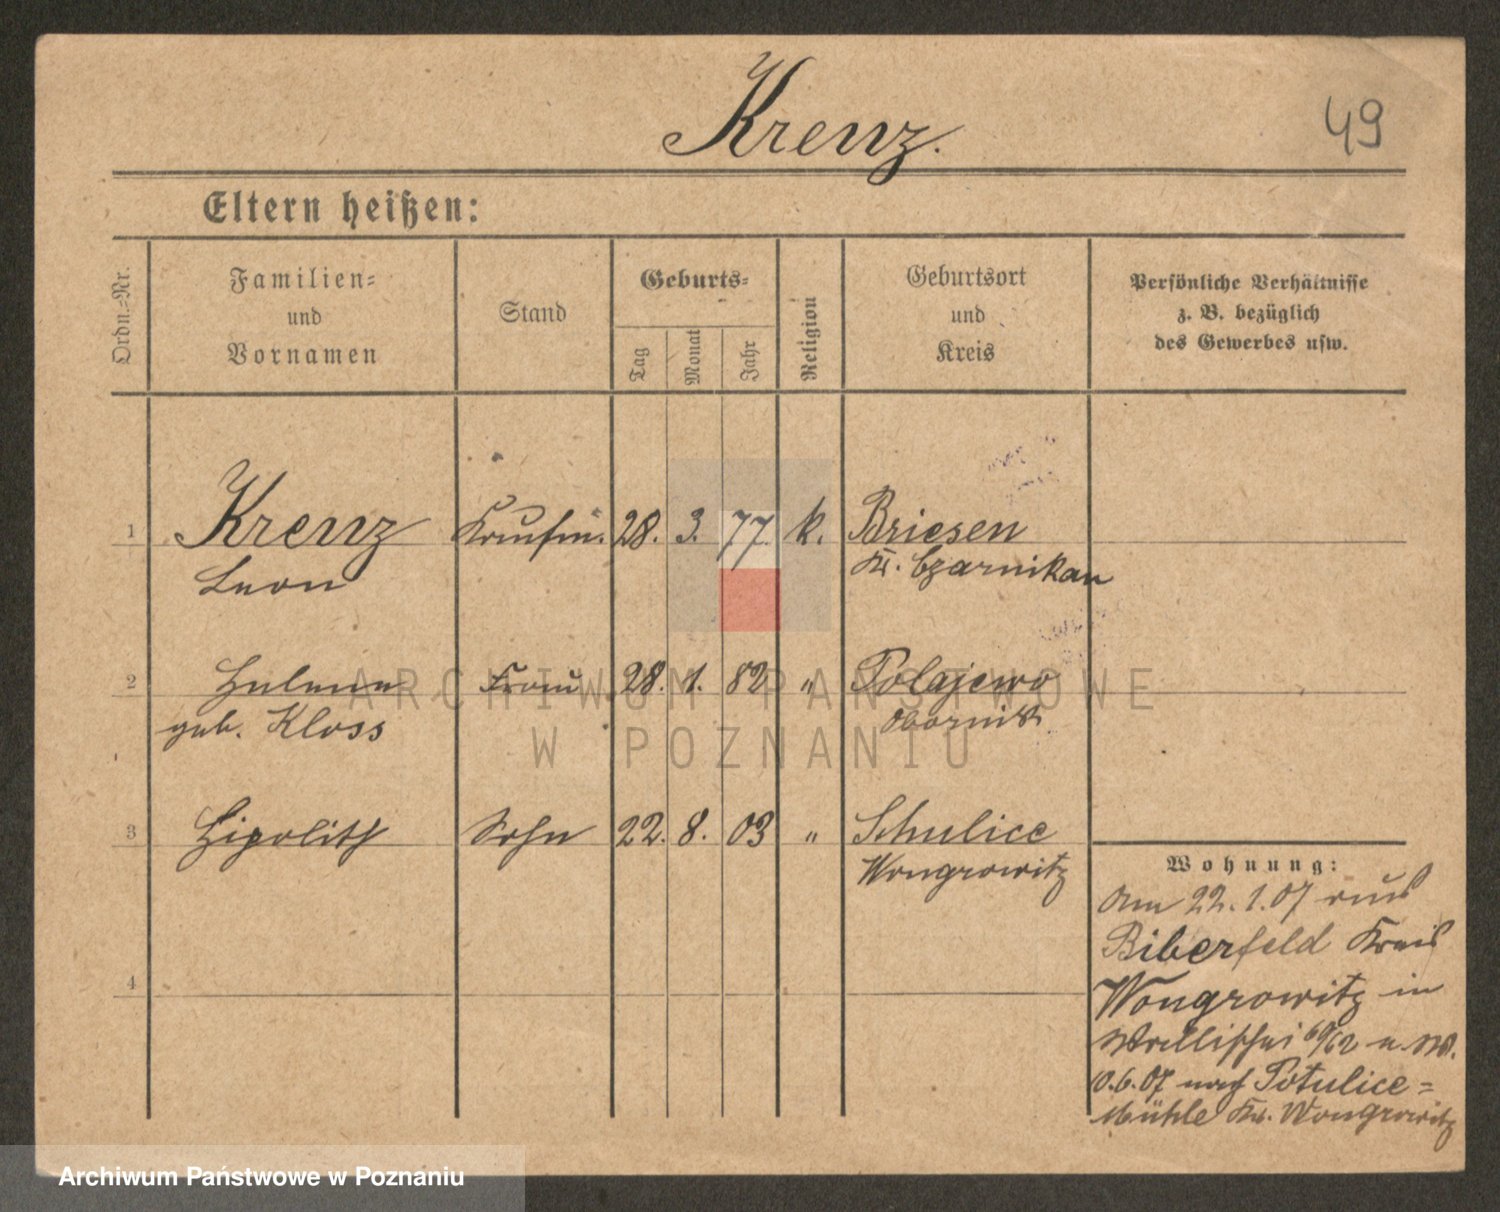 Krenz.
49
Eltern heißen:
Ordn.=Nr.
Familien=
und
Vornamen
Stand
Geburts=
Tag
Monat
Jahr
Religion
Geburtsort
und
Kreis
Persönliche Verhältnisse
z. B. bezüglich
des Gewerbes usw.
1 Krenz 28. 3. 77. k. Briesen
Leon Kr. Czarnikau
2 Helene Frau 28. 1. 82 " Polajewo
geb. Kloss Obornik
3 Hipolith Sohn 22. 8. 03 " Schulice
Wongrowitz
4
Wohnung:
Am 22.1.07 aus
Biberfeld Kreis
Wongrowitz in
Wallischei u.
.6.07 nach Potulice=
Mühle Kr. Wongrowitz
ARCHIWUM PAŃSTWOWE
W POZNANIU
Archiwum Państwowe w Poznaniu